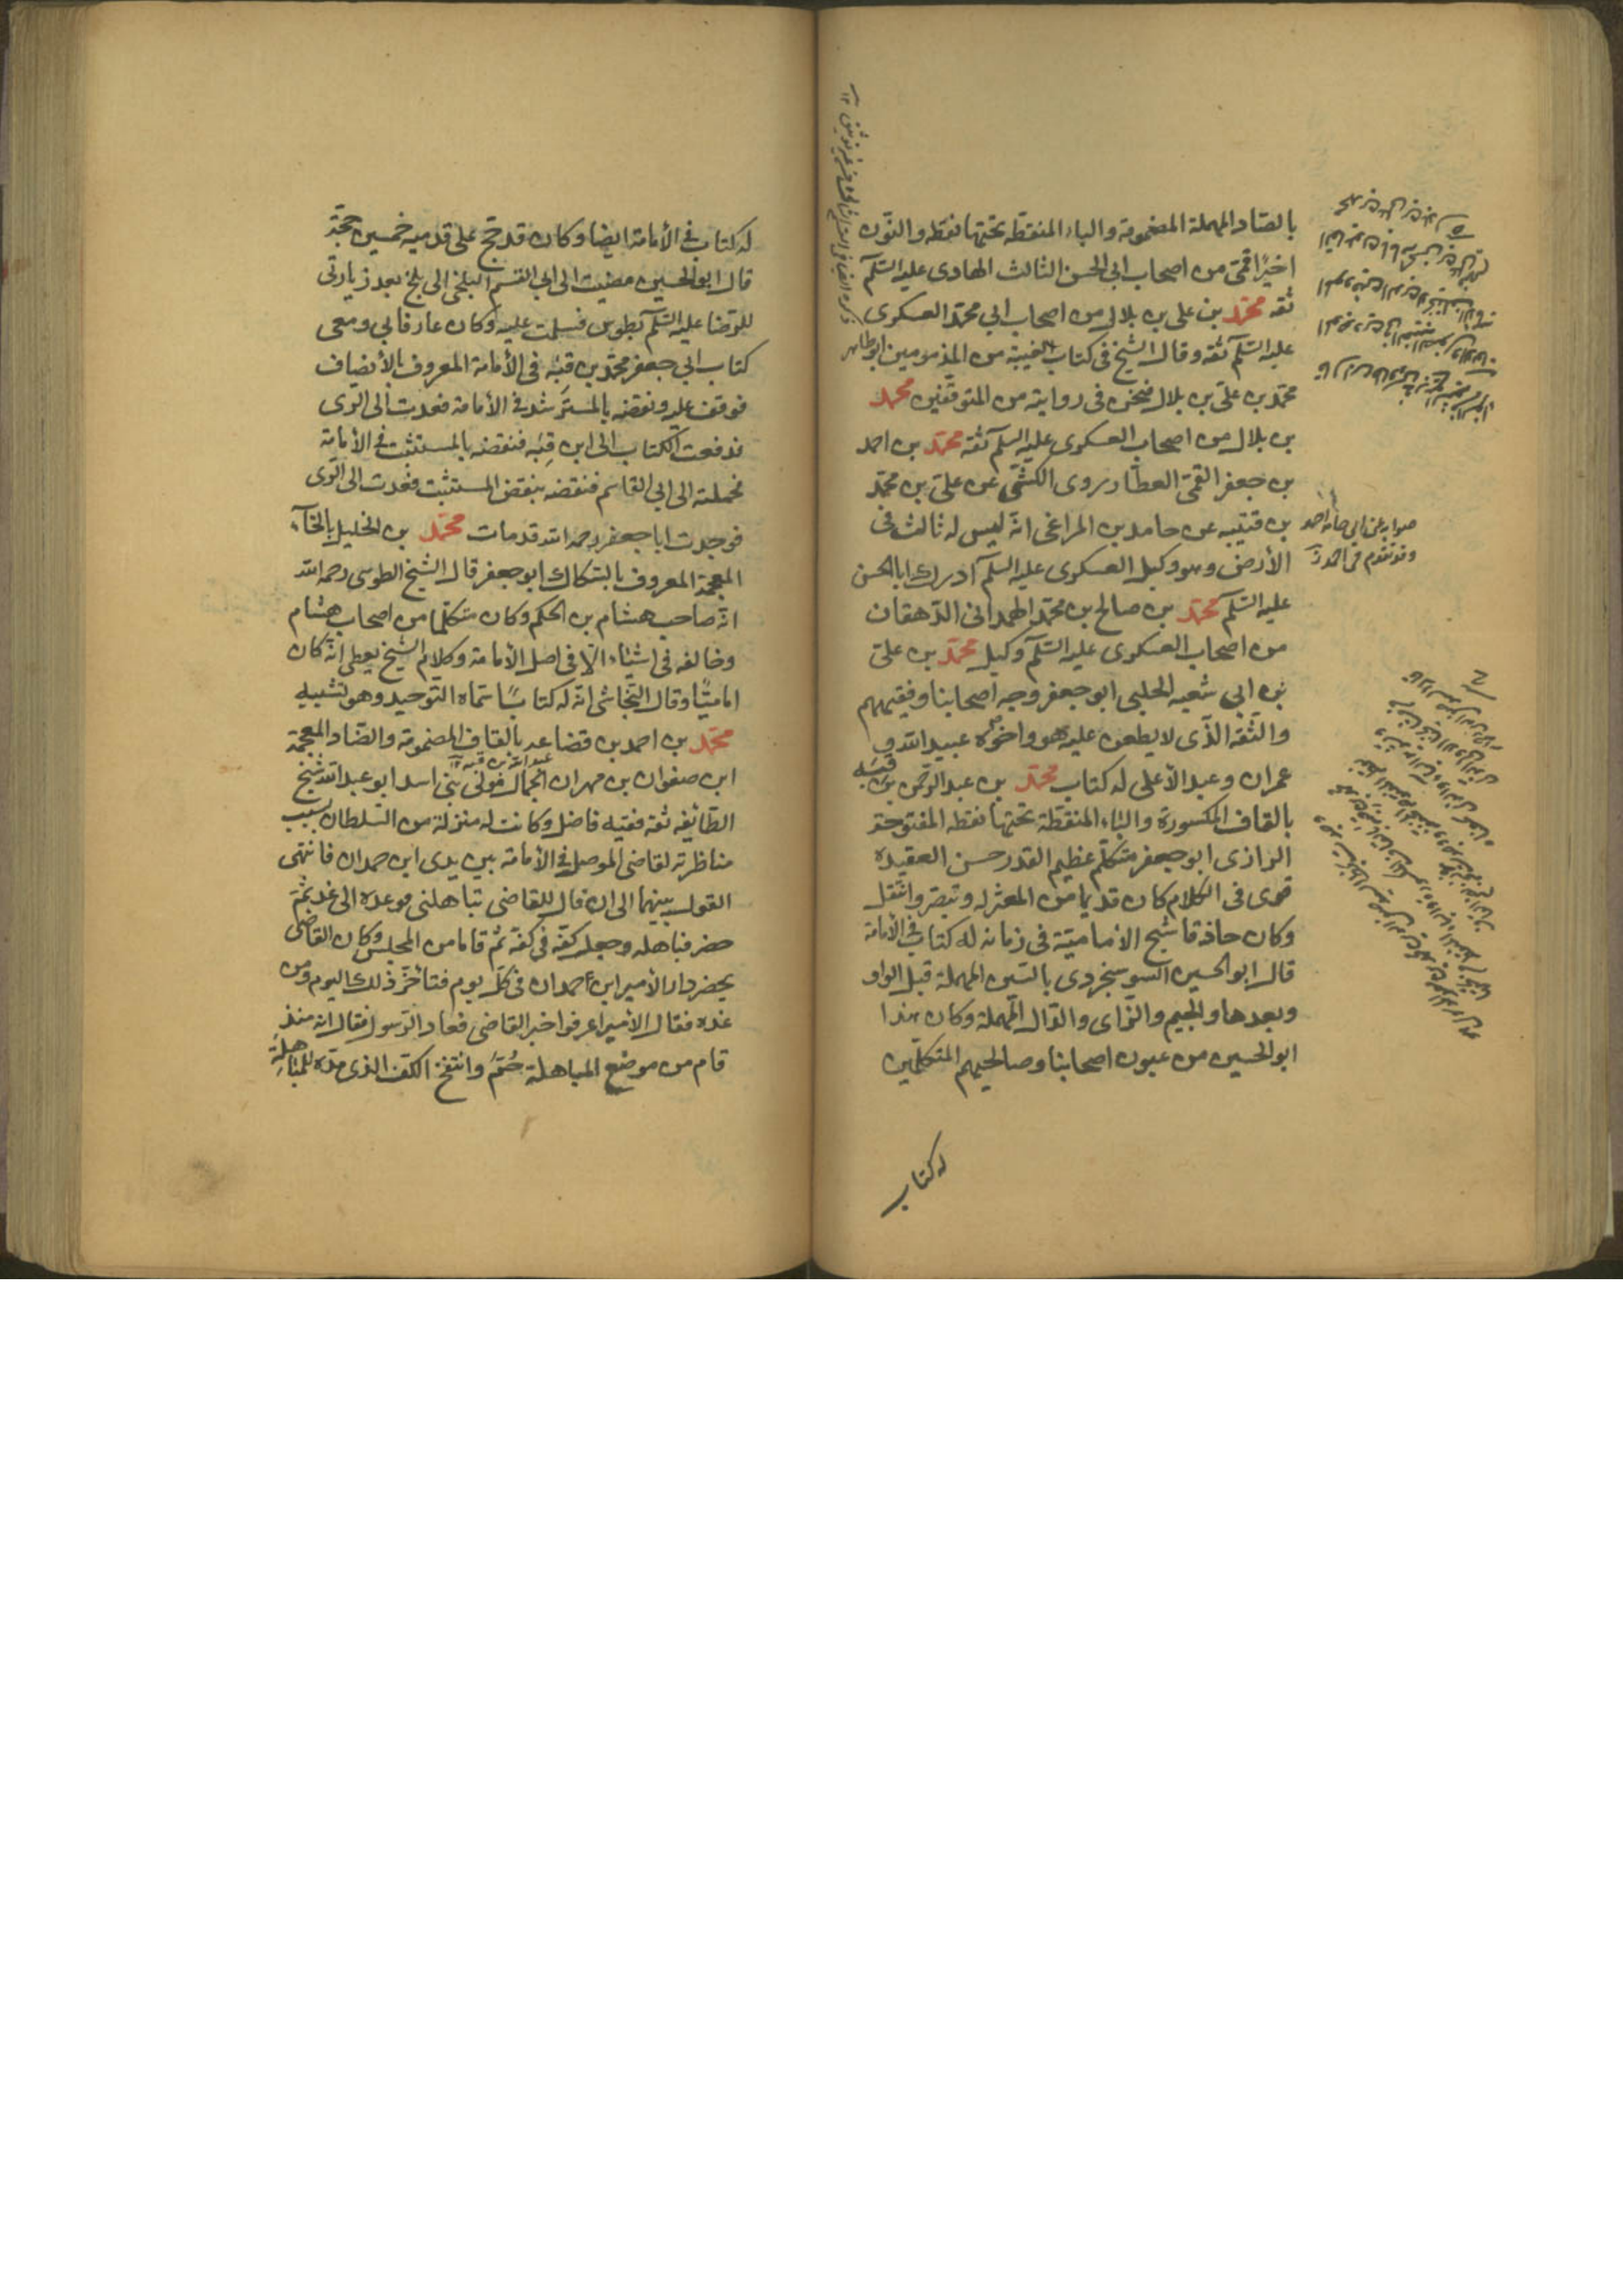 بالصاد المهملة المضمومة والباء المنقطه تحتها نقطه والنون
اخيرًا قمى من اصحاب ابى الحسن الثالث الهادى عليه السلم
ثقه محمد بن على بن بلال من اصحاب ابى محمد العسكرى
عليه السلم ثقه وقال الشيخ فى كتاب الغيبة من المذمومين ابو طاهر
محمد بن على بن بلال فنحن فى روايته من المتوقفين محمد
بن بلال من اصحاب العسكرى عليه السلم ثقه محمد بن احمد
بن جعفر القمى العطار روى الكشى عن على بن محمد
بن قتيبه عن حامد بن المراغى انه ليس له ثالث فى
الأرض وهو وكيل العسكرى عليه السلم ادرك ابا الحسن
عليه السلم محمد بن صالح بن محمد الهمدانى الدهقان
من اصحاب العسكرى عليه السلم وكيل محمد بن على
بن ابى شعبه الحلبى ابو جعفر وجه اصحابنا وفقيههم
والثقه الذى لا يطعن عليه هو واخوه عبيد الله و
عمران وعبد الأعلى له كتاب محمد بن عبد الرحمن بن قبه
بالقاف المكسورة والباء المنقطة تحتها نقطه المفتوحة
الرازى ابو جعفر متكلم عظيم القدر حسن العقيده
قوى فى الكلام كان قديما من المعتزله وتبصر وانتقل
وكان حاذقا شيخ الامامية فى زمانه له كتاب فى الأمامة
قال ابو الحسين السوسنجردى بالسين المهملة قبل الواو
وبعدها والجيم والزاى والدال المهملة وكان هذا
ابو الحسين من عيون اصحابنا وصالحيهم المتكلمين
له كتاب
صوابه على ابى حامد احمد
وقد تقدم فى احمد
له كتاب فى الأمامة ايضا وكان قد حج على قدميه خمسين حجة
قال ابو الحسين مضيت الى ابى القسم البلخى الى بلخ بعد زيارتى
للرضا عليه السلم بطوس فسلمت عليه وكان عارفا بى ومعى
كتاب ابى جعفر محمد بن قبه فى الأمامة المعروف بالأنصاف
فوقف عليه ونقضه بالمسترشد فى الأمامة فعدت الى الرى
فدفعت الكتاب الى ابن قبه فنقضه بالمستثبت فى الأمامة
فحملته الى ابى القاسم فنقضه بنقض المستثبت فعدت الى الرى
فوجدت ابا جعفر رحمه الله قد مات محمد بن الخليل بالخاء
المعجمة المعروف بالسكاك ابو جعفر قال الشيخ الطوسى رحمه الله
انه صاحب هشام بن الحكم وكان متكلما من اصحاب هشام
وخالفه فى اشياء الا فى اصل الأمامة وكلام الشيخ يعطى انه كان
اماميًا وقال النجاشى انه له كتابًا سماه التوحيد وهو تشبيه
محمد بن احمد بن قضاعه بالقاف المضمومة والضاد المعجمة
ابن صفوان بن مهران الجمال مولى بنى اسد ابو عبد الله شيخ
الطائفه ثقه فقيه فاضل وكانت له منزلة من السلطان بسبب
مناظرته لقاضى الموصل فى الأمامة بين يدى ابن حمدان فانتهى
القول بينهما الى ان قال للقاضى تباهلنى فوعده الى غد ثم
حضر فباهله وجعل كفه فى كفه ثم قاما من المجلس وكان القاضى
يحضر دار الأمير ابن حمدان فى كل يوم فتأخر ذلك اليوم ومن
غده فقال الأمير اعرفوا خبر القاضى فعاد الرسول فقال انه منذ
قام من موضع المباهلة حُمَّ وانتفخ الكف الذى مده للمباهلة